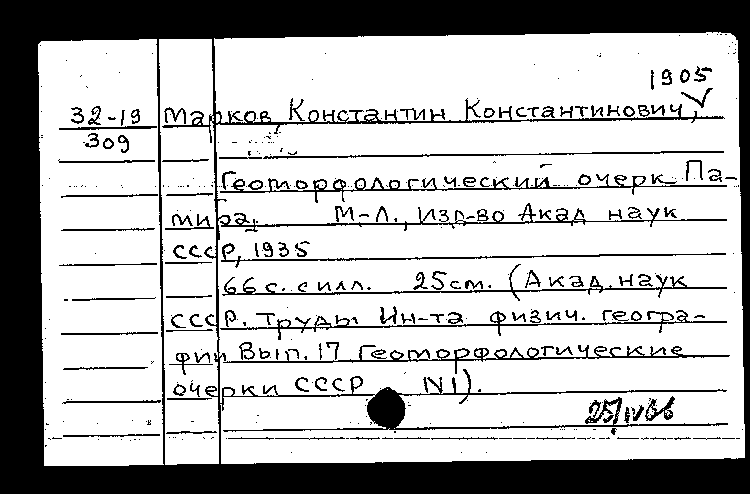 1905
32-19 Марков, Константин Константинович,
309
Геоморфологический очерк Па-
мира. М-Л., Изд-во Акад наук
СССР, 1935
66 с. с илл. 25 см. (Акад. наук
СССР. Труды Ин-та физич. геогра-
фии Вып. 17 Геоморфологические
очерки СССР N1).
25/IV66